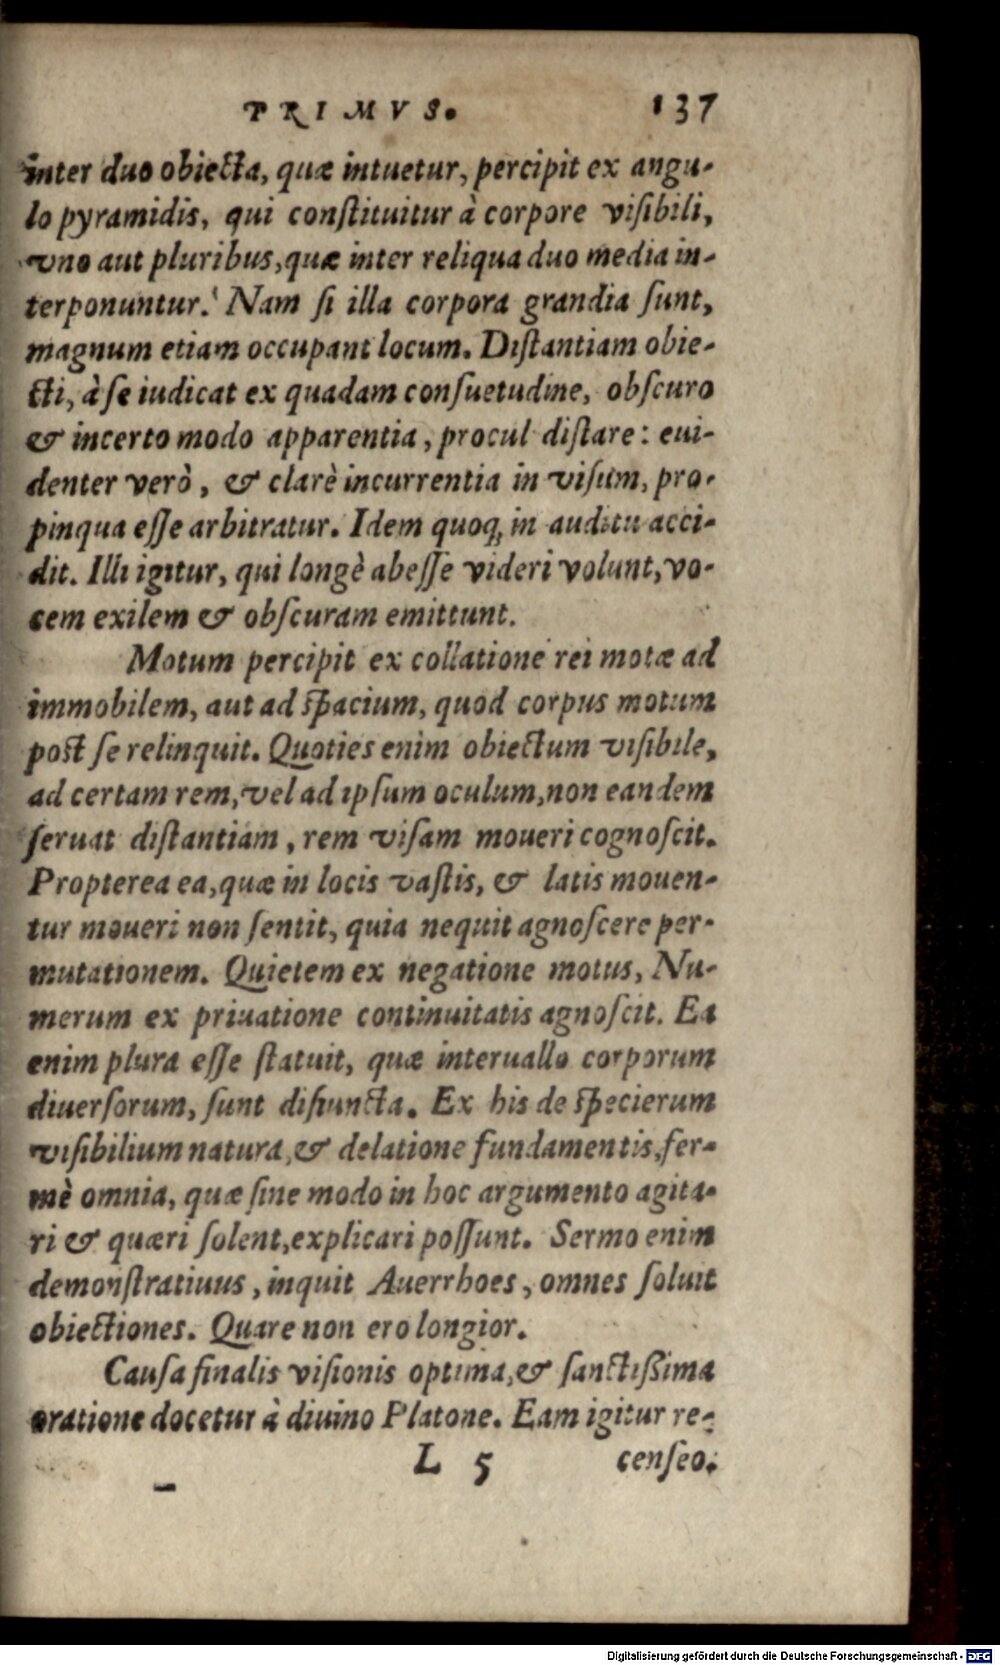 PRIMVS. 137
inter duo obiecta, quæ intuetur, percipit ex angu-
lo pyramidis, qui conſtituitur à corpore viſibili,
vno aut pluribus, quæ inter reliqua duo media in-
terponuntur. Nam ſi illa corpora grandia ſunt,
magnum etiam occupant locum. Diſtantiam obie-
cti, à ſe iudicat ex quadam conſuetudine, obſcuro
& incerto modo apparentia, procul diſtare: eui-
denter verò, & clarè incurrentia in viſum, pro-
pinqua eſſe arbitratur. Idem quoq; in auditu acci-
dit. Illi igitur, qui longè abeſſe videri volunt, vo-
cem exilem & obſcuram emittunt.
Motum percipit ex collatione rei motæ ad
immobilem, aut ad ſpacium, quod corpus motum
poſt ſe relinquit. Quoties enim obiectum viſibile,
ad certam rem, vel ad ipſum oculum, non eandem
ſeruat diſtantiam, rem viſam moueri cognoſcit.
Propterea ea, quæ in locis vaſtis, & latis mouen-
tur moueri non ſentit, quia nequit agnoſcere per-
mutationem. Quietem ex negatione motus, Nu-
merum ex priuatione continuitatis agnoſcit. Ea
enim plura eſſe ſtatuit, quæ interuallo corporum
diuerſorum, ſunt diſiuncta. Ex his de ſpecierum
viſibilium natura, & delatione fundamentis, fer-
mè omnia, quæ ſine modo in hoc argumento agita-
ri & quæri ſolent, explicari poſſunt. Sermo enim
demonſtratiuus, inquit Auerrhoes, omnes ſoluit
obiectiones. Quare non ero longior.
Cauſa finalis viſionis optima, & ſanctißima
oratione docetur à diuino Platone. Eam igitur re-
L 5 cenſeo.
Digitalisierung gefördert durch die Deutsche Forschungsgemeinschaft - DFG